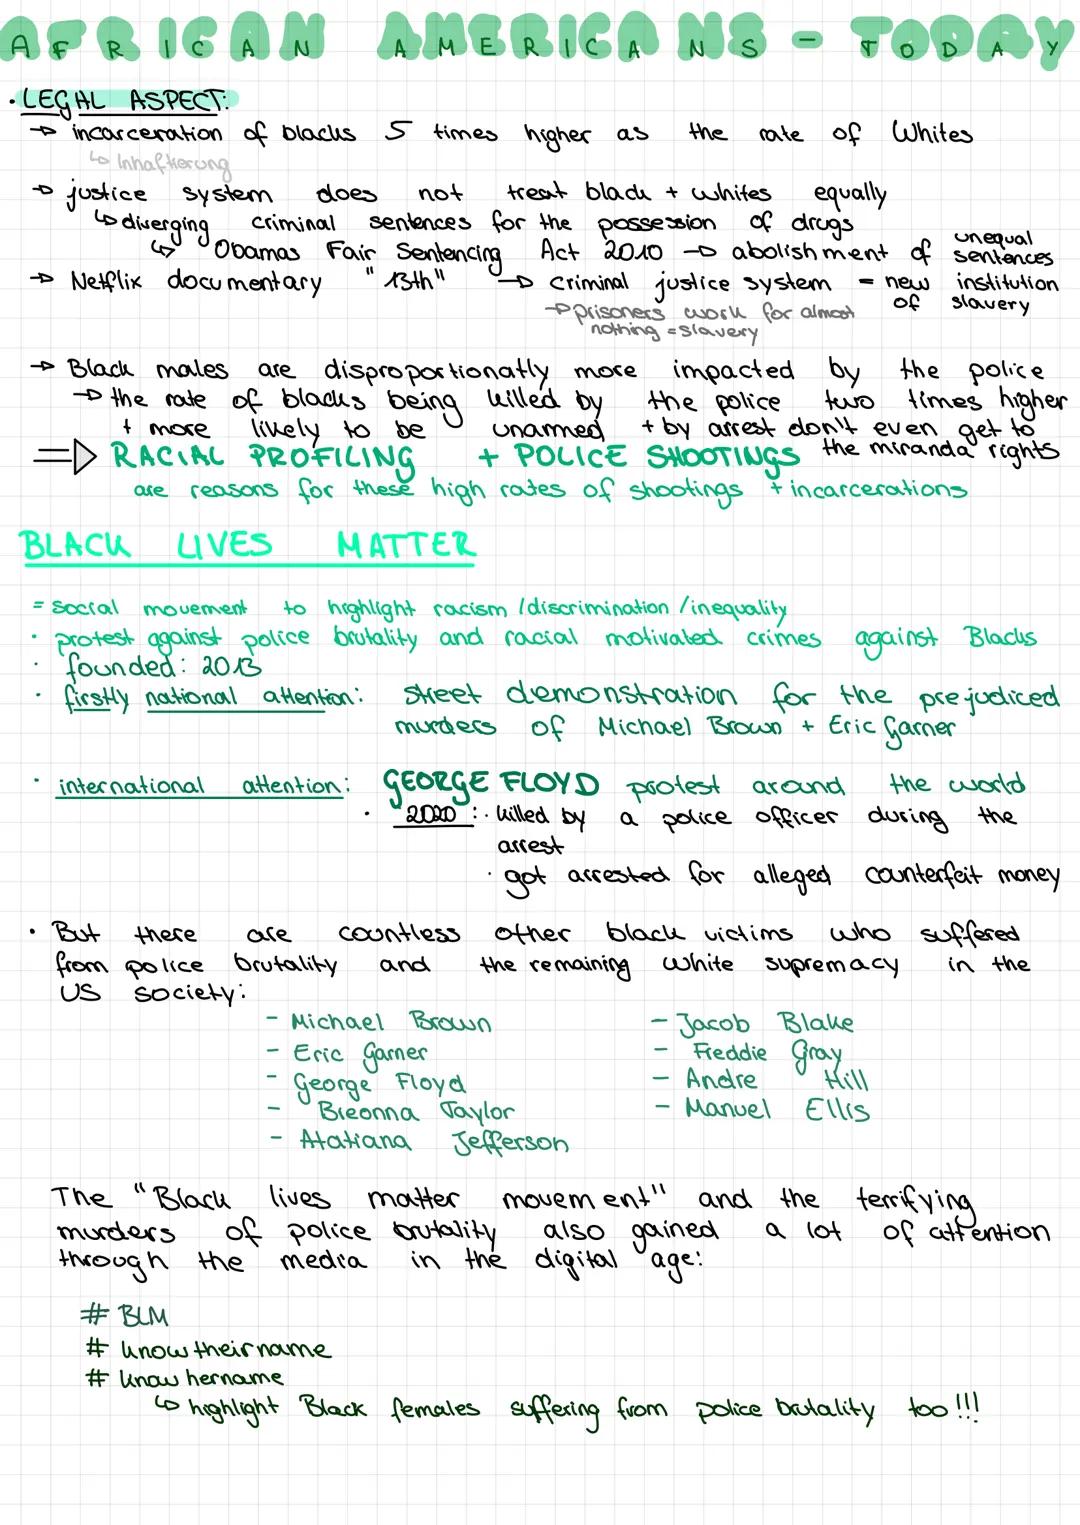 AFRICAN AMERICANS - TODAY
· LEGAL ASPECT:
→ incarceration of blacks 5 times higher as the rate of Whites
↳ Inhaftierung
→ justice system does not treat black + whites equally
↳ diverging criminal sentences for the possession of drugs
↳ Obamas Fair Sentencing Act 2010 → abolishment of unequal sentences
→ Netflix documentary "13th" → criminal justice system = new institution of slavery
→ prisoners work for almost
nothing = slavery
→ Black males are disproportionatly more impacted by the police
→ the rate of blacks being killed by the police two times higher
+ more likely to be unarmed + by arrest don't even get to the miranda rights
⇒ RACIAL PROFILING + POLICE SHOOTINGS
are reasons for these high rates of shootings + incarcerations
BLACK LIVES MATTER
= social movement to highlight racism /discrimination /inequality
· protest against police brutality and racial motivated crimes against Blacks
· founded: 2013
· firstly national attention: street demonstration for the prejudiced
murders of Michael Brown + Eric Garner
· international attention: GEORGE FLOYD protest around the world
· 2020: · killed by a police officer during the
arrest
· got arrested for alleged counterfeit money
· But there are countless other black victims who suffered
from police brutality and the remaining white supremacy in the
US society:
- Michael Brown
- Eric Garner
- George Floyd
- Breonna Taylor
- Atatiana Jefferson
- Jacob Blake
- Freddie Gray
- Andre Hill
- Manuel Ellis
The "Black lives matter movement" and the terrifying
murders of police brutality also gained a lot of attention
through the media in the digital age:
# BLM
# knowtheirname
# knowhername
↳ highlight Black females suffering from police brutality too!!!